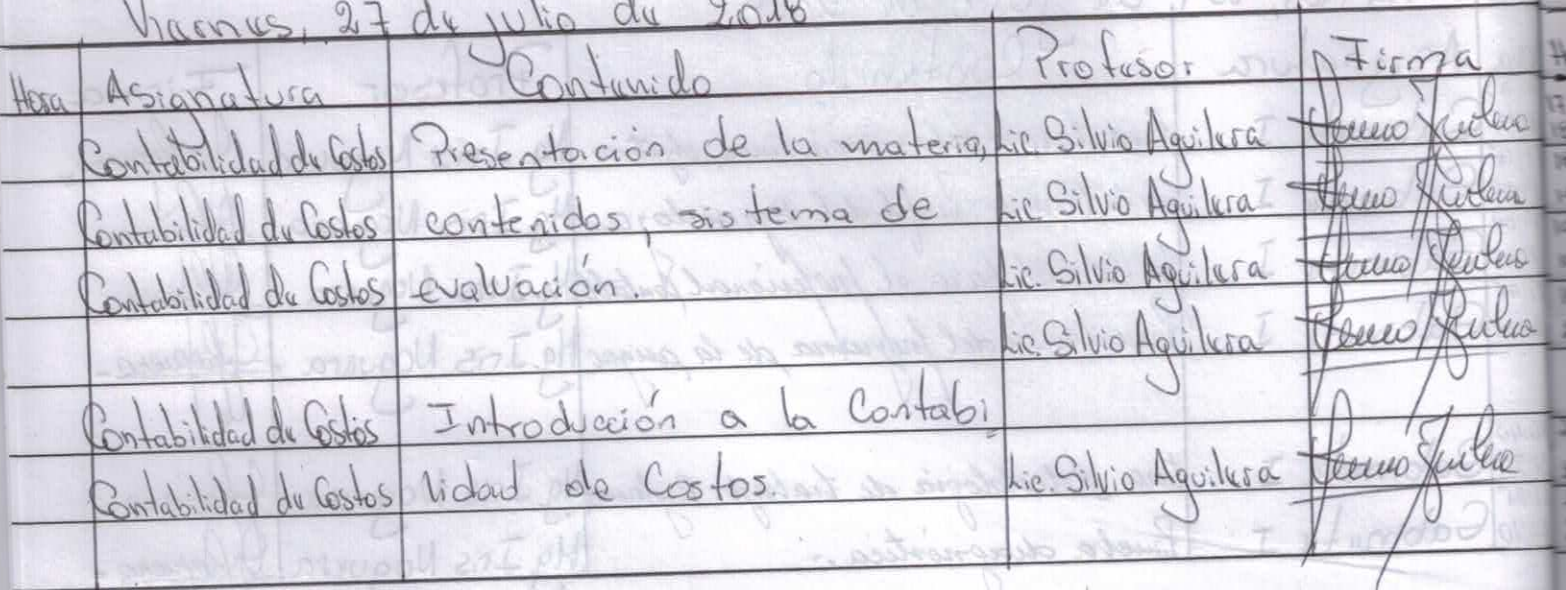 Viernes, 27 de julio de 2018
Hora Asignatura Contenido Profesor Firma
Contabilidad de Costos Presentación de la materia, Lic. Silvio Aguilera
Contabilidad de Costos contenidos, sistema de Lic. Silvio Aguilera
Contabilidad de Costos evaluación. Lic. Silvio Aguilera
Lic. Silvio Aguilera
Contabilidad de Costos Introducción a la Contabi
Contabilidad de Costos lidad de Costos. Lic. Silvio Aguilera